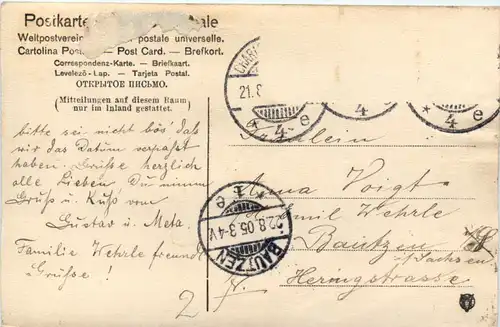 Postkarte
Weltpostverein postale universelle.
Cartolina Post — Post Card. — Brefkort.
Correspondenz-Karte. — Briefkaart.
Levelező-Lap. — Tarjeta Postal.
ОТКРЫТОЕ ПИСЬМО.
(Mitteilungen auf diesem Raum)
nur im Inland gestattet.
bitte sei nicht bös' daß
wir das Datum verpaßt
haben. Grüße herzlich
alle Lieben. Du nimm
Gruß u. Kuß vom
Gustav u. Meta.
Familie Wehrle freundl.
Grüße!
2
21.8
* 4 e
4
* 4 e
Fräulein
Anna Voigt
Emil Wehrle
Bautzen
i/Sachsen
Heringstrasse
7.
BAUTZEN
22.8.05.3-4V.
* 1 e